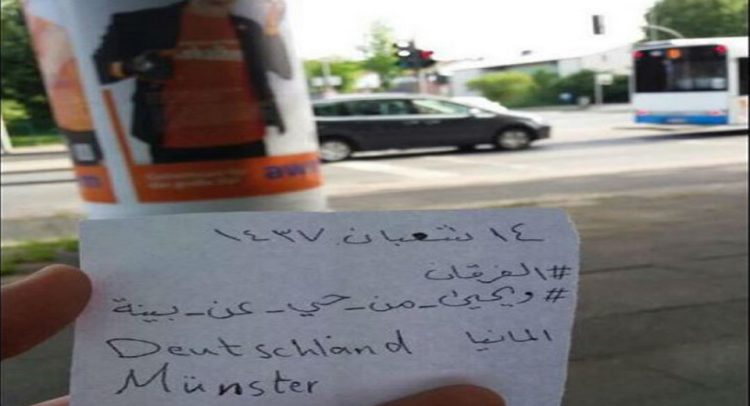 ١٤ شعبان ١٤٣٧
#الفرقان
#ويحيى_من_حي_عن_بينة
المانيا
Deutschland
Münster